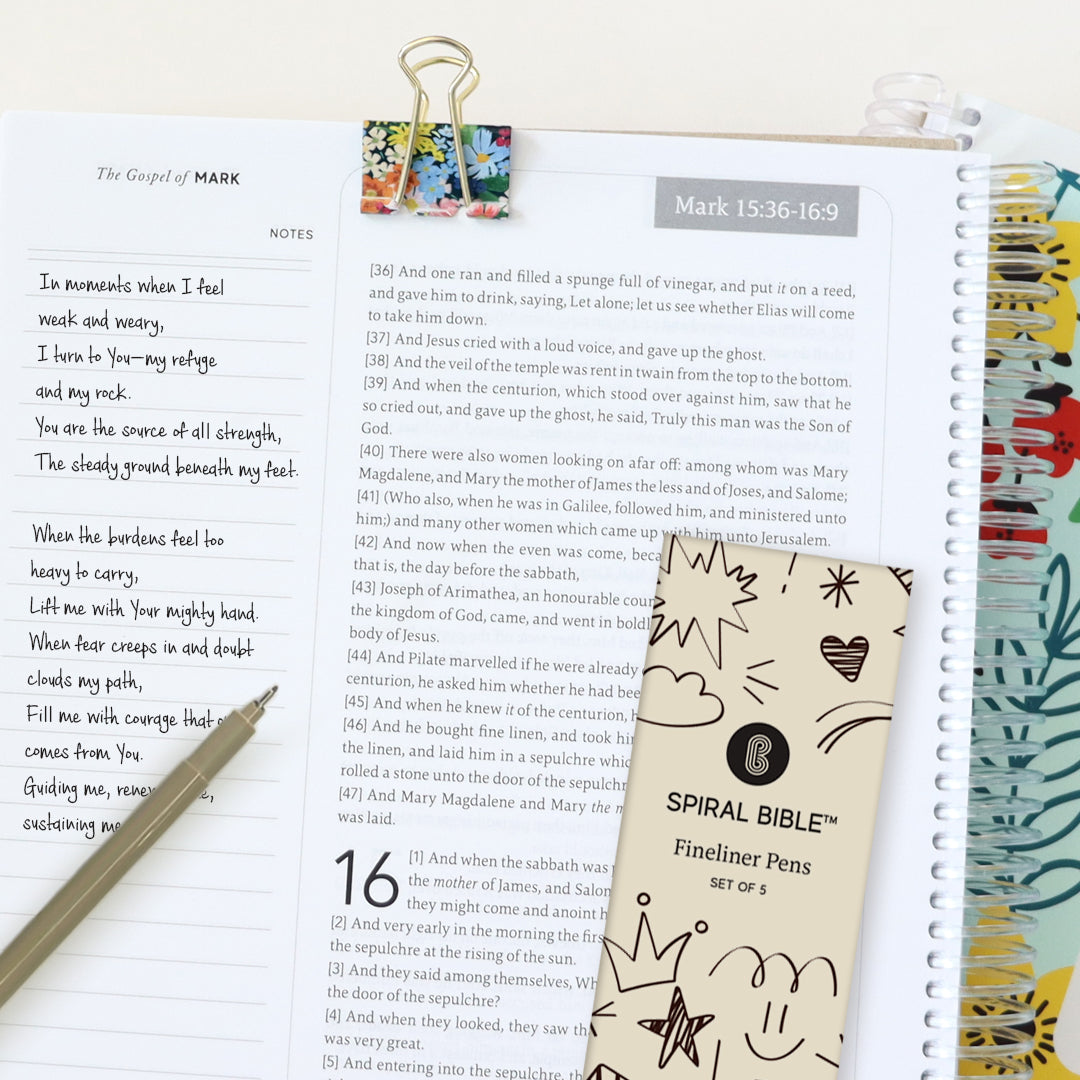 The Gospel of MARK
NOTES
In moments when I feel
weak and weary,
I turn to You—my refuge
and my rock.
You are the source of all strength,
The steady ground beneath my feet.
When the burdens feel too
heavy to carry,
Lift me with Your mighty hand.
When fear creeps in and doubt
clouds my path,
Fill me with courage that
comes from You.
Guiding me,
sustaining me
Mark 15:36-16:9
[36] And one ran and filled a spunge full of vinegar, and put it on a reed,
and gave him to drink, saying, Let alone; let us see whether Elias will come
to take him down.
[37] And Jesus cried with a loud voice, and gave up the ghost.
[38] And the veil of the temple was rent in twain from the top to the bottom.
[39] And when the centurion, which stood over against him, saw that he
so cried out, and gave up the ghost, he said, Truly this man was the Son of
God.
[40] There were also women looking on afar off: among whom was Mary
Magdalene, and Mary the mother of James the less and of Joses, and Salome;
[41] (Who also, when he was in Galilee, followed him, and ministered unto
him;) and many other women which came up with him unto Jerusalem.
[42] And now when the even was come,
that is, the day before the sabbath,
[43] Joseph of Arimathea, an honourable
the kingdom of God, came, and went in
body of Jesus.
[44] And Pilate marvelled if he were already
centurion, he asked him whether he had
[45] And when he knew it of the centurion,
[46] And he bought fine linen, and took
the linen, and laid him in a sepulchre
rolled a stone unto the door of the
[47] And Mary Magdalene and Mary the
was laid.
16 [1] And when the sabbath was
the mother of James, and
they might come and anoint
[2] And very early in the morning the
the sepulchre at the rising of the sun.
[3] And they said among themselves,
the door of the sepulchre?
[4] And when they looked, they saw
was very great.
[5] And entering into the sepulchre,
SPIRAL BIBLE™
Fineliner Pens
SET OF 5